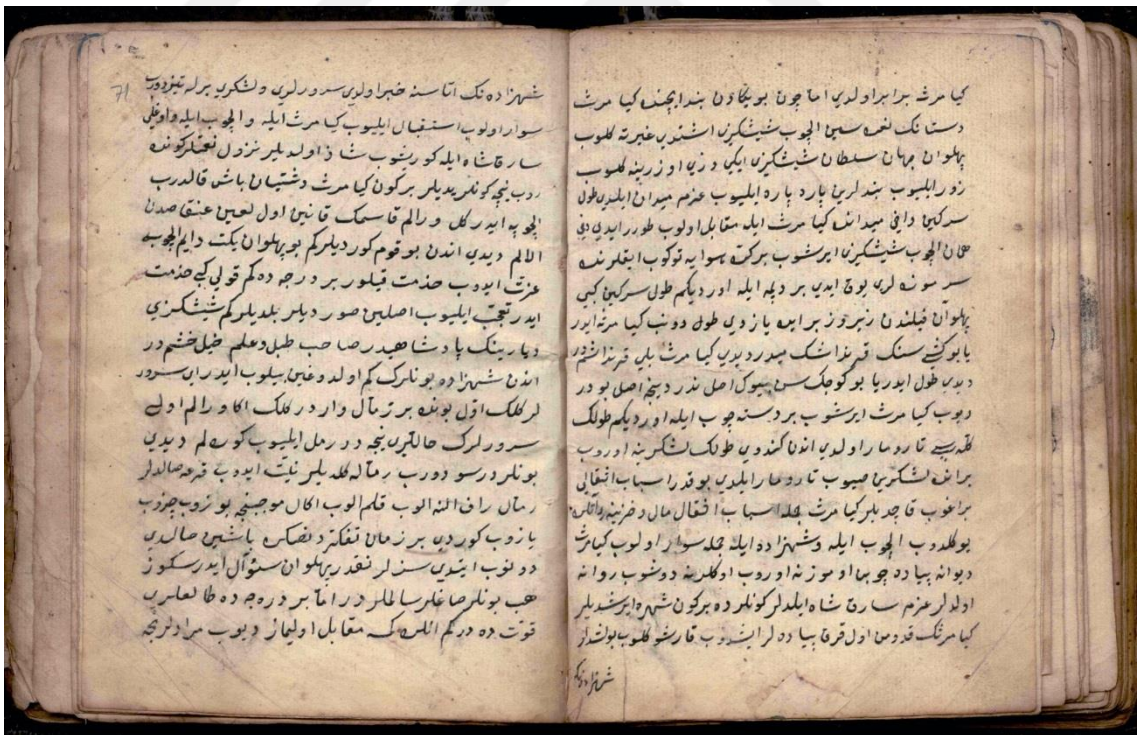 كيا مرث برابر اولدي اما چون بو يكاون بند ايچنده كيا مرث
دستانك نعره سين الجوب شيشكيزى اشتدى غيرته كلوب
پهلوان جهان سلطان شيشكيزى ايكى دزى اوزرينه كلوب
زور ايليوب بندلرين پاره پاره ايليوب عزم ميدان ايلدى طول
سركين داخى ميدانده كيا مرث ايله مقابل اولوب طورر ايدى دخى
همان الجوب شيشكيزى ايرشوب بركز هوايه توكوب ايقلرنده
بر ديكه ايله اورديكم طول سركين كبى
پهلوان فيلندن يره ياز دى طول دونب كيا مرثه ايدر
يا بو كشى سنك قرنداشك ميدر ديدى كيا مرث بلى قرنداشمدر
ديدى طول ايدر يا بو كوجك سن بيوك اصل ندر دينجه اصل بودر
ديوب كيا مرث ايرشوب بر دسته چوب ايله اورديكم طولك
كله سى تارومار اولدى اندن كندوى طولك لشكرينه اوروب
براندە لشكرين صيوب تارومار ايلدى بو قدر اسباب اثقالى
براغوب قاچديلر كيا مرث جمله اسباب اثقال مال و خزينه و اتلرى
يوكلدوب الجوب ايله وشهزاده ايله جمله سوار اولوب كيا مرث
ديوانه پياده چوبى اوموزنه اوروب اوكلرينه دوشوب روانه
اولدلر عزم سارق شاه ايلدلر كونلرده بر كون شهره ايرشديلر
كيا مرثك قدومن اول قرق پياده لر ايشدوب قارشو كلوب بولشدلر
شهزاده نك
71
شهزاده نك اتاسنه خبر اولدى سرورلرى و لشكرى برله تيزدورب
سوار اولوب استقبال ايليوب كيا مرث ايله و الجوب ايله واوغلى
سارقا شاه ايله كورشوب شاذ اولديلر نزول
دوب نيچه كونلر يديلر بر كون كيا مرث دشتبان باش قالدرب
الجوبه ايدر كل و رالم قاسمك قانين اول لعين عنقاصدن
الالم ديدى اندن بو قوم كورديلر كم بو پهلوان يكت دايم الجوبه
عزت ايدوب خذمت قيلور بر درجه ده كم قولى كبى خذمت
ايدر تعجب ايليوب اصلين صورديلر بلديلر كم شيشكيزى
ديارينك پادشاهيدر صاحب طبل و علم خيل خشم در
اندن شهزاده بونلرك كم اولدوغين بيلوب ايدر اى سرور
لر كلك اول بونده بر رمال واردر كلك اكا ورالم اول
سرورلرك حاللرى نيجه در رمل ايليوب كوره لم ديدى
بونلر درسو دورب رماله كلديلر نيت ايدوب قرعه صالدلر
رمال راف النه الوب قلم الوب اكال موجبنجه بوزوب چزوب
يازوب كوردى بر زمان تفكر دنصكره باشين صالدى
دونوب ايتدى سزلر نقدر پهلوان سئوال ايدرسكوز
هب بونلر صاغلر سالملردر اما بر درجه ده طالعلرى
قوت ده در كم انلره كمسه مقابل اوليماز ديوب مرادلرنجه